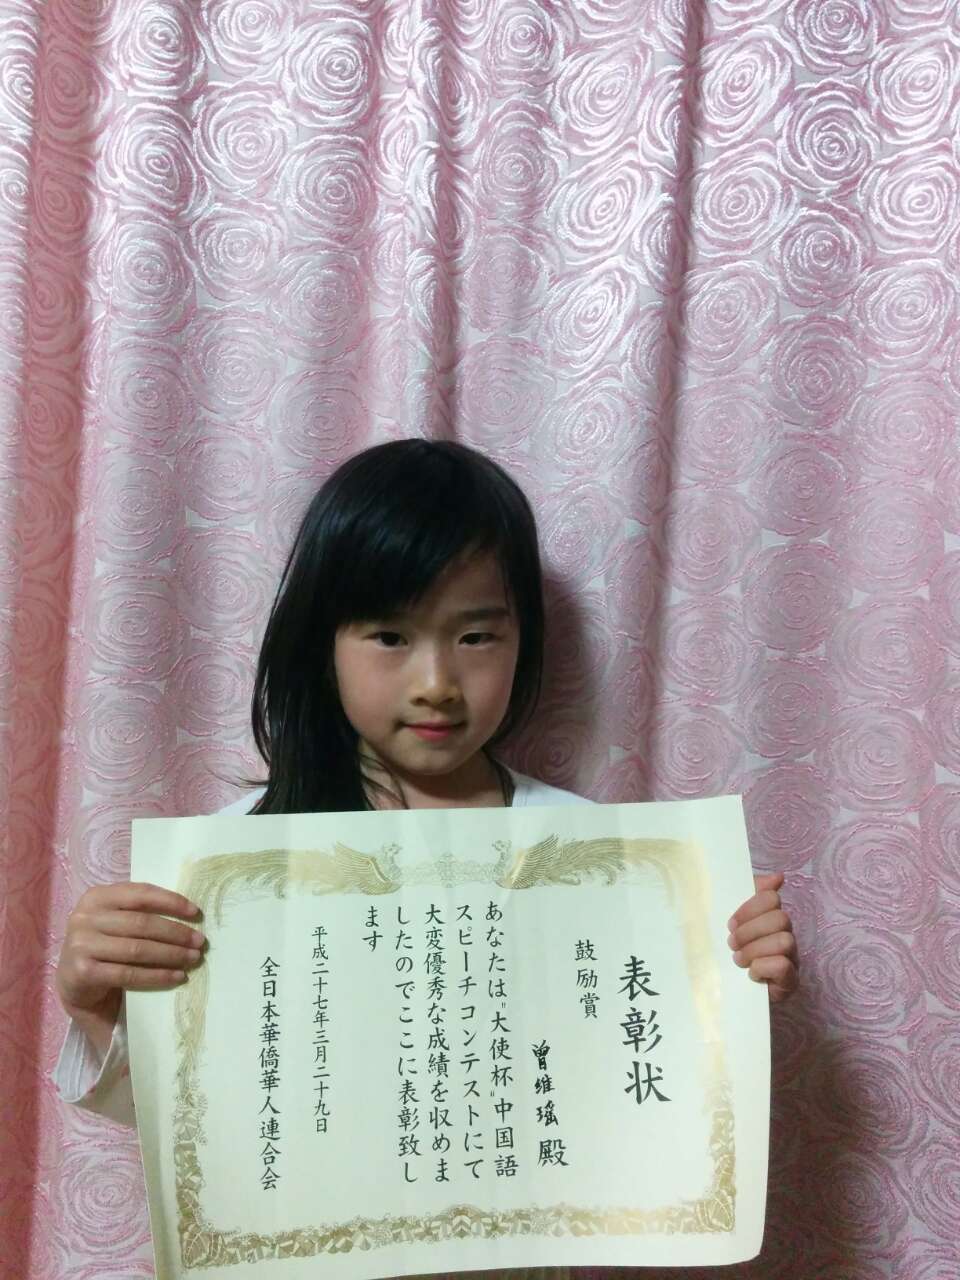 表彰状
鼓励賞
曽維瑶 殿
あなたは"大使杯"中国語
スピーチコンテストにて
大変優秀な成績を収めま
したのでここに表彰致し
ます
平成二十七年三月二十九日
全日本華僑華人連合会